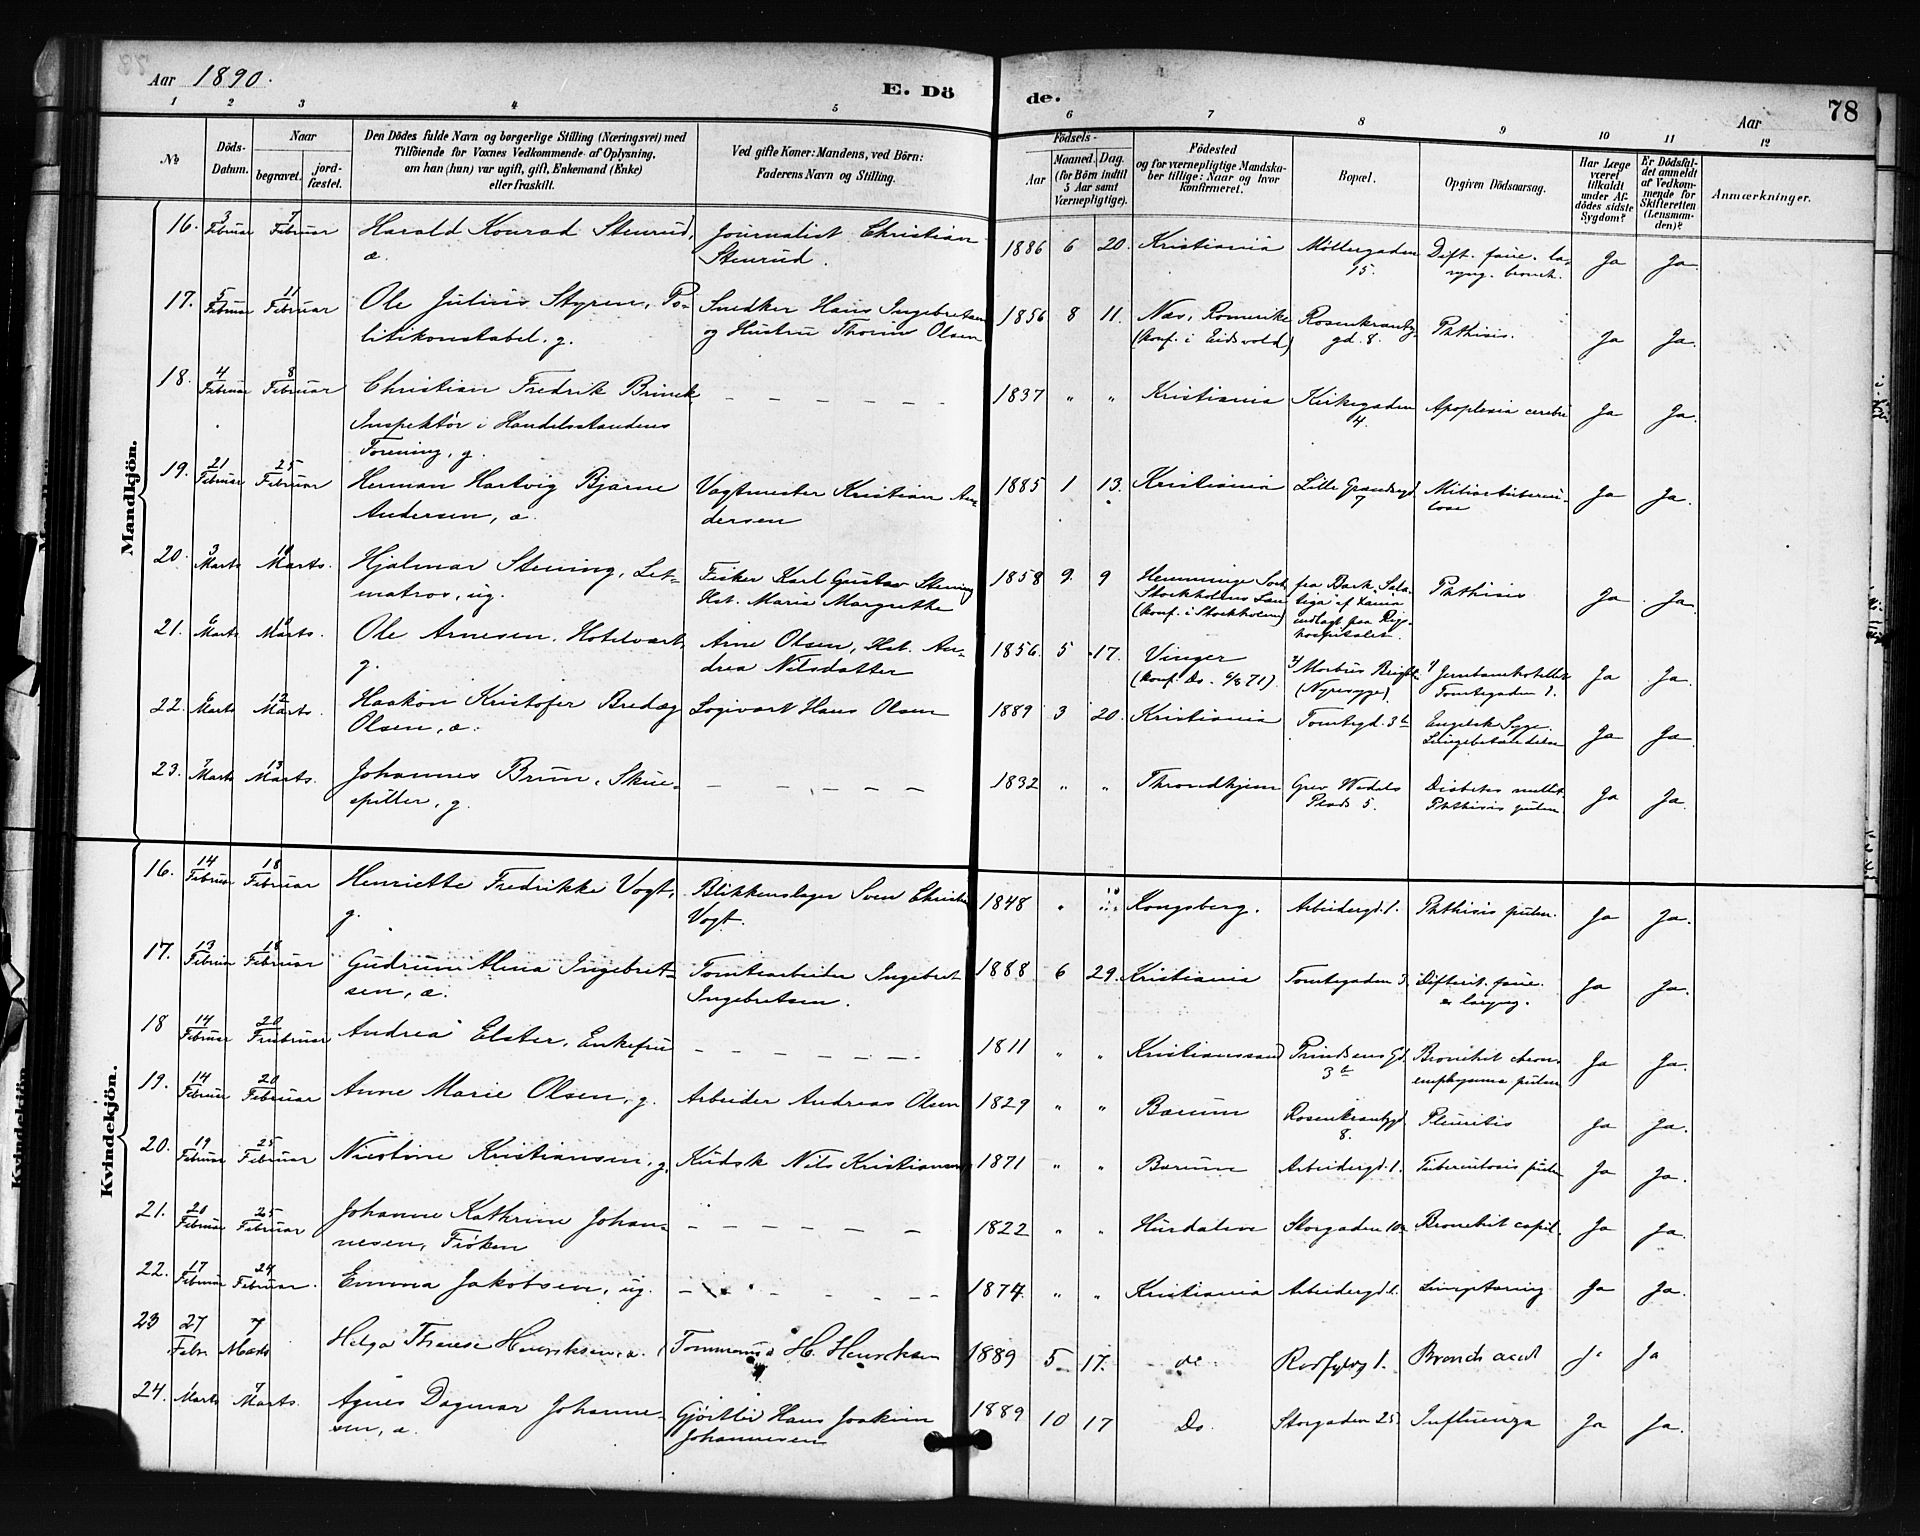 Aar 1890.
E. Dö
de.
Aar
78
1 2 3 4 5 6 7 8 9 10 11 12
№
Döds-
Datum.
Naar
begravet.
jord-
fæstet.
Den Dödes fulde Navn og borgerlige Stilling (Næringsvei) med
Tilföiende for Voxnes Vedkommende af Oplysning,
om han (hun) var ugift, gift, Enkemand (Enke)
eller fraskilt.
Ved gifte Koner: Mandens, ved Börn:
Faderens Navn og Stilling.
Födsels-
Aar
Maaned.
Dag.
(for Börn indtil
5 Aar samt
Værnepligtige).
Födested
og for værnepligtige Mandska-
ber tillige: Naar og hvor
konfirmeret.
Bopæl.
Opgiven Dödsaarsag.
Har Læge
været
tilkaldt
under Af-
dödes sidste
Sygdom?
Er Dödsfal-
det anmeldt
af Vedkom-
mende for
Skifteretten
(Lensman-
den)?
Anmærkninger.
Mandkjön.
16. 3 Februar 7 Februar Harald Konrad Stenrud, Journalist Christian 1886 6 20. Kristiania Möllergaden Dift. fauc. la- Ja Ja.
æ. Stenrud. 15. ryng. bronch.
17. 5 Februar 11 Februar Ole Julius Styren, Po- Snedker Hans Ingebretsen 1856 8 11. Næs, Romerike Rosenkrantz- Phthisis. Ja Ja.
litikonstabel. g. og Hustru Olsen (konf. i Eidsvold) gd. 8.
18. 4 Februar 8 Februar Christian Fredrik Brinck – – – – – – 1837 " " Kristiania Kirkegaden Apoplexia cerebri Ja Ja.
Inspektör i Handelsstandens 14.
Forening, g.
19. 21 Februar 25 Februar Herman Hartvig Bjarne Vagtmester Kristian An- 1885 1 13. Kristiania Lille Grændsegd. Miliærtubercu- Ja Ja.
Andersen, æ. dersen 7 lose
20. 3 Marts 10 Marts. Hjalmar Stening, Let- Fisker Karl Gustav Stening 1858 9. 9 Hemminge Phthisis Ja Ja.
matros, ug. Hst. Maria Margrethe Stockholms Län fra Bark
(konf. i Stockholm) indlagt paa Rigs-
hospitalet.
21. 6 Marts Marts. Ole Arnesen, Hotelvært, Arne Olsen, Hst. An- 1856. 5 17. Vinger Morbus Brightii Jernbanehotellet Ja Ja.
g. drea Nilsdatter (konf. Do. 71). (Nyresyge) Tomtegaden
22. 6 Marts 12 Marts. Haakon Kristofer Bredæg Logivært Hans Olsen 1889 3 20. Kristiania Tomtegd. 3b Engelsk Syge. Ja Ja.
Olsen, æ. Lungebetændelse
23. 7 Marts 13 Marts. Johannes Brun, Skue- – – – – – – 1832 " " Throndhjem Grev Wedels Diabetes mellit. Ja Ja.
spiller, g. Plads 5. Phthisis pulm.
Kvindekjön.
16. 14 Februar 18 Februar Henriette Fredrikke Vogt, Blikkenslager Sven Christian 1848 " Kongsberg. Arbeidergd. 1. Phthisis pulm. Ja Ja.
g. Vogt.
17. 13 Februar 18 Februar Gudrun Alma Ingebret- Tomtearbeider Ingebret 1888 6 29. Kristiania Tomtegaden 3. Difterit. fauc. Ja Ja.
sen, æ. Ingebretsen. & laryng.
18 14 Februar 20 Frubruar Andrea Elster, Enkefru – – – – – – 1811 " " Kristianssand Prindsens Gd. Bronchit chron. Ja Ja.
3b emphysema pulm.
19. 14 Februar 20 Februar Anne Marie Olsen, g. Arbeider Andreas Olsen 1829 " " Bærum Rosenkrantzgd. Pleuritis Ja Ja.
8.
20. 19 Februar 25 Februar Nicoline Kristiansen, g. Kudsk Nils Kristiansen 1871 " " Bærum Arbeidergd. 1. Tuberculosis pulm Ja Ja.
21. 20 Februar 25 Februar Johanne Kathrine Johan- – – – – – – 1822 " " Hurdalen Storgaden 10a Bronchit capil. Ja Ja.
nesen, Fröken
22. 17 Februar 24 Februar. Emma Jakobsen, ug. – – – – – – 1874. " " Kristiania Arbeidergd. 1. Lungetæring Ja Ja.
23 27 Febr. 7 Marts Helga Therese Henriksen, æ. H. Henriksen 1889 5 17. do. 1. Bronch acut Ja Ja
24. 1 Marts 7 Marts. Agnes Dagmar Johanne- Gjörtler Hans Joakim 1889 10 17 Do. Storgaden 25. Influenza Ja Ja.
sen, æ. Johannesen